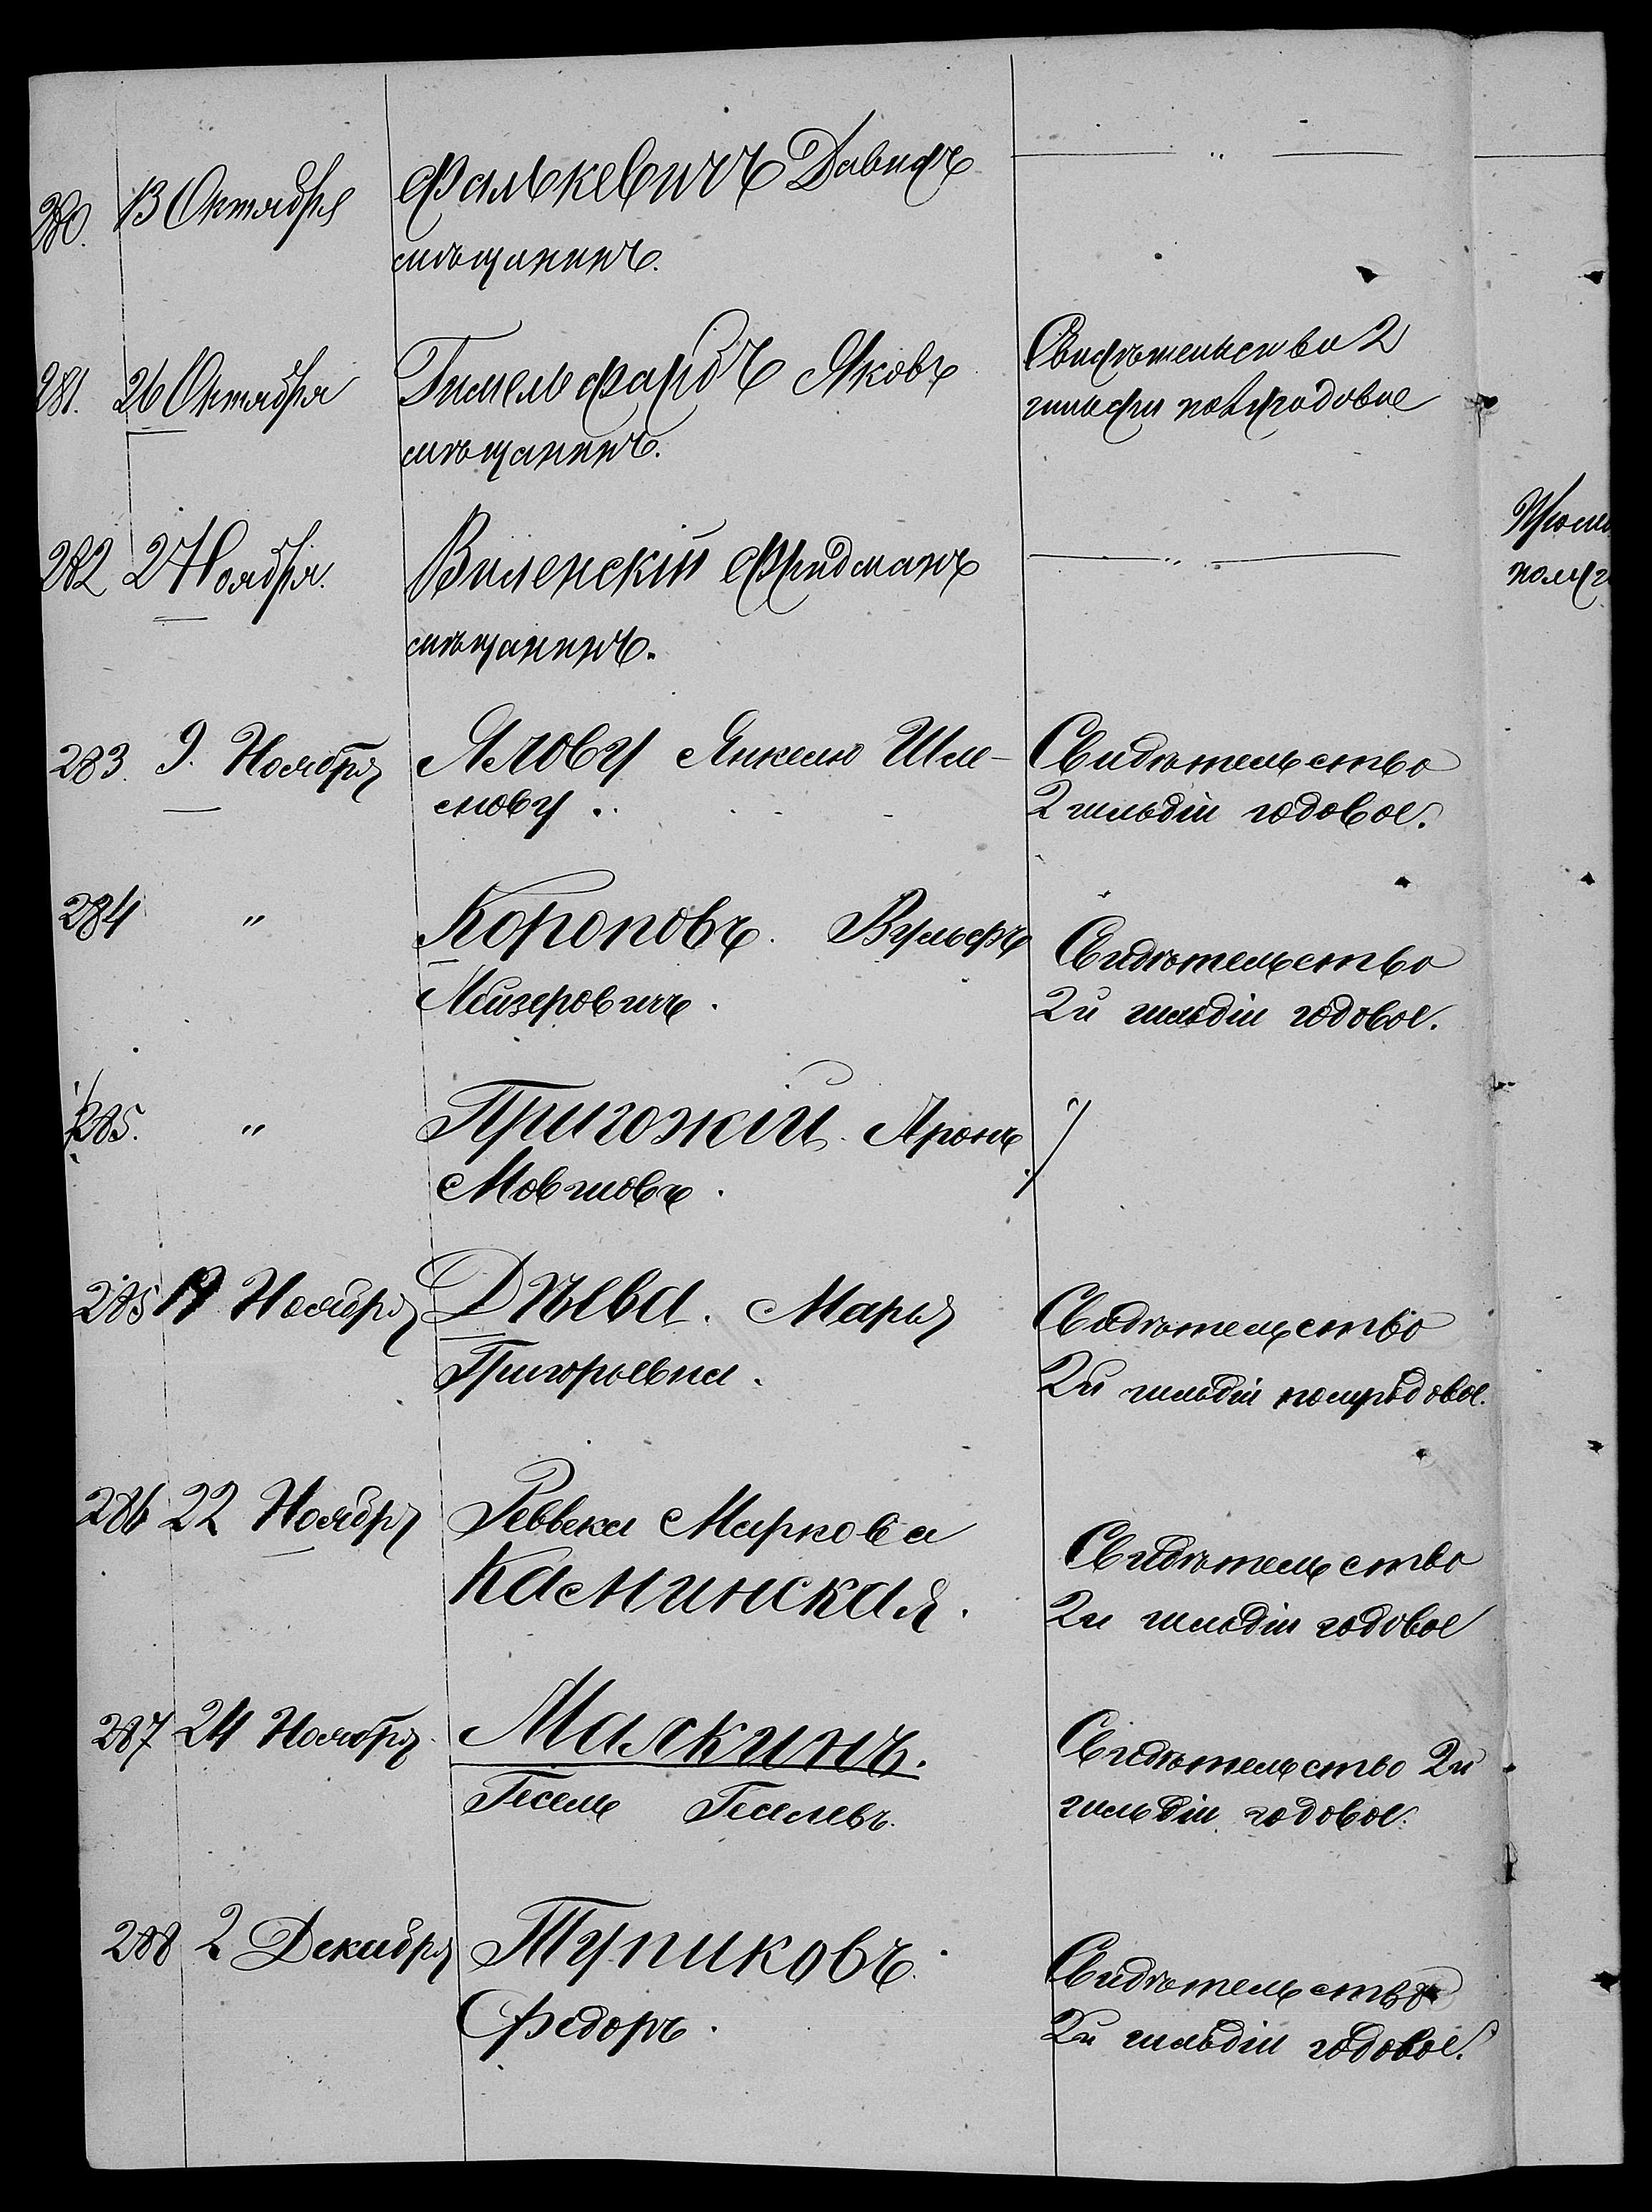 280. 13 Октября Фалькевичъ Давидъ — „ —
мѣщанинъ.
281. 26 Октября Гимельфарбъ Яковъ Свидѣтельства 2
мѣщанинъ. гильдіи полугодовое
282 2 Ноября. Виленскій Фридманъ — „ —
мѣщанинъ.
283. 9. Ноября Ялову Янкелю Шле-
мову . Свидѣтельство
2 гильдіи годовое.
284 " Короповъ. Вульфъ
Лейзеровичъ. Свидѣтельство
2й гильдіи годовое.
285. " Пригожій. Аронъ
Мовшовъ.
285 19 Ноября Дѣева. Марья
Григорьевна. Свидѣтельство
2й гильдіи полугодовое.
286 22 Ноября Реввека Маркова
Каминская. Свидѣтельство
2й гильдіи годовое
287 24 Ноября Малкинъ.
Гесель Геселевъ. Свидѣтельство 2й
гильдіи годовое.
288 2 Декабря Тупиковъ.
Федоръ. Свидѣтельство
2й гильдіи годовое.